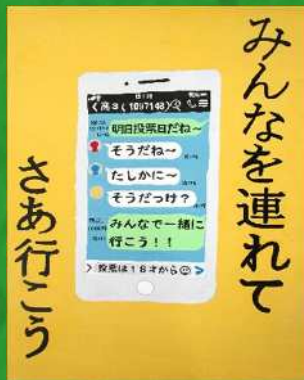 みんなを連れて
さあ行こう
く高3(1097148)
明日投票日だね～
そうだね～
たしかに～
そうだっけ？
みんなで一緒に
行こう！！
投票は18才から